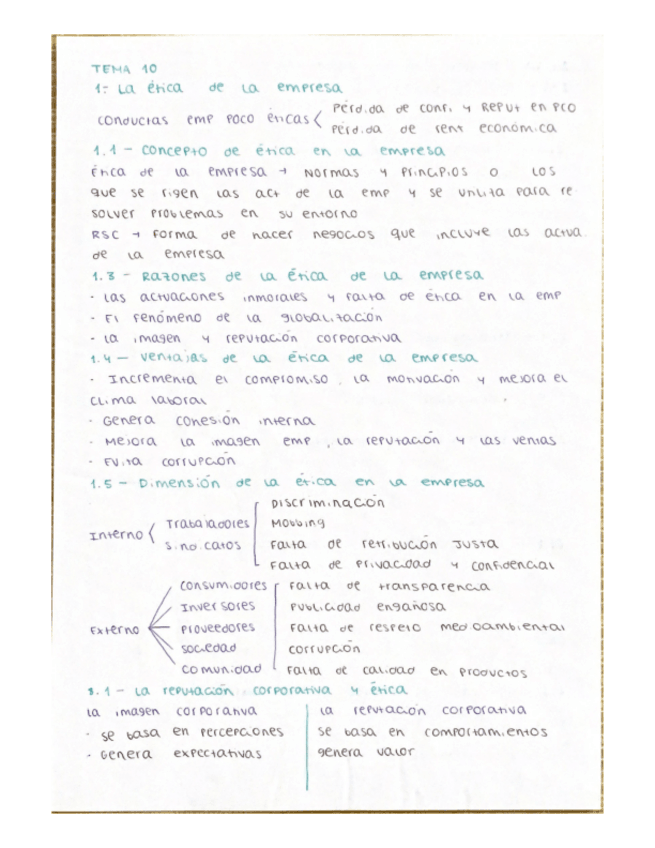 TEMA 10
1- La ética de la empresa
conductas emp poco éticas < Pérdida de conf. y Reput en PCO
Pérdida de rent económica
1.1 - Concepto de ética en la empresa
Ética de la empresa → Normas y Principios o los
que se rigen las act de la emp y se utiliza para re
solver problemas en su entorno
RSC → forma de hacer negocios que incluye las actua
de la empresa
1.3 - Razones de la ética de la empresa
· Las actuaciones inmorales y falta de ética en la emp
· El fenómeno de la globalización
· La imagen y reputación corporativa
1.4 - Ventajas de la ética de la empresa
· Incrementa el compromiso, la motivación y mejora el
clima laboral
· Genera cohesión interna
· Mejora la imagen emp, la reputación y las ventas
· Evita corrupción
1.5 - Dimensión de la ética en la empresa
Interno < Trabajadores
Sindicatos
Discriminación
Mobbing
Falta de retribución justa
Falta de privacidad y confidencial
Externo
Consumidores
Inversores
Proveedores
sociedad
Comunidad
falta de transparencia
Publicidad engañosa
Falta de respeto medioambiental
corrupción
Falta de calidad en productos
3.1 - La reputación corporativa y ética
La imagen corporativa
· se basa en percepciones
· Genera expectativas
La reputación corporativa
se basa en comportamientos
genera valor